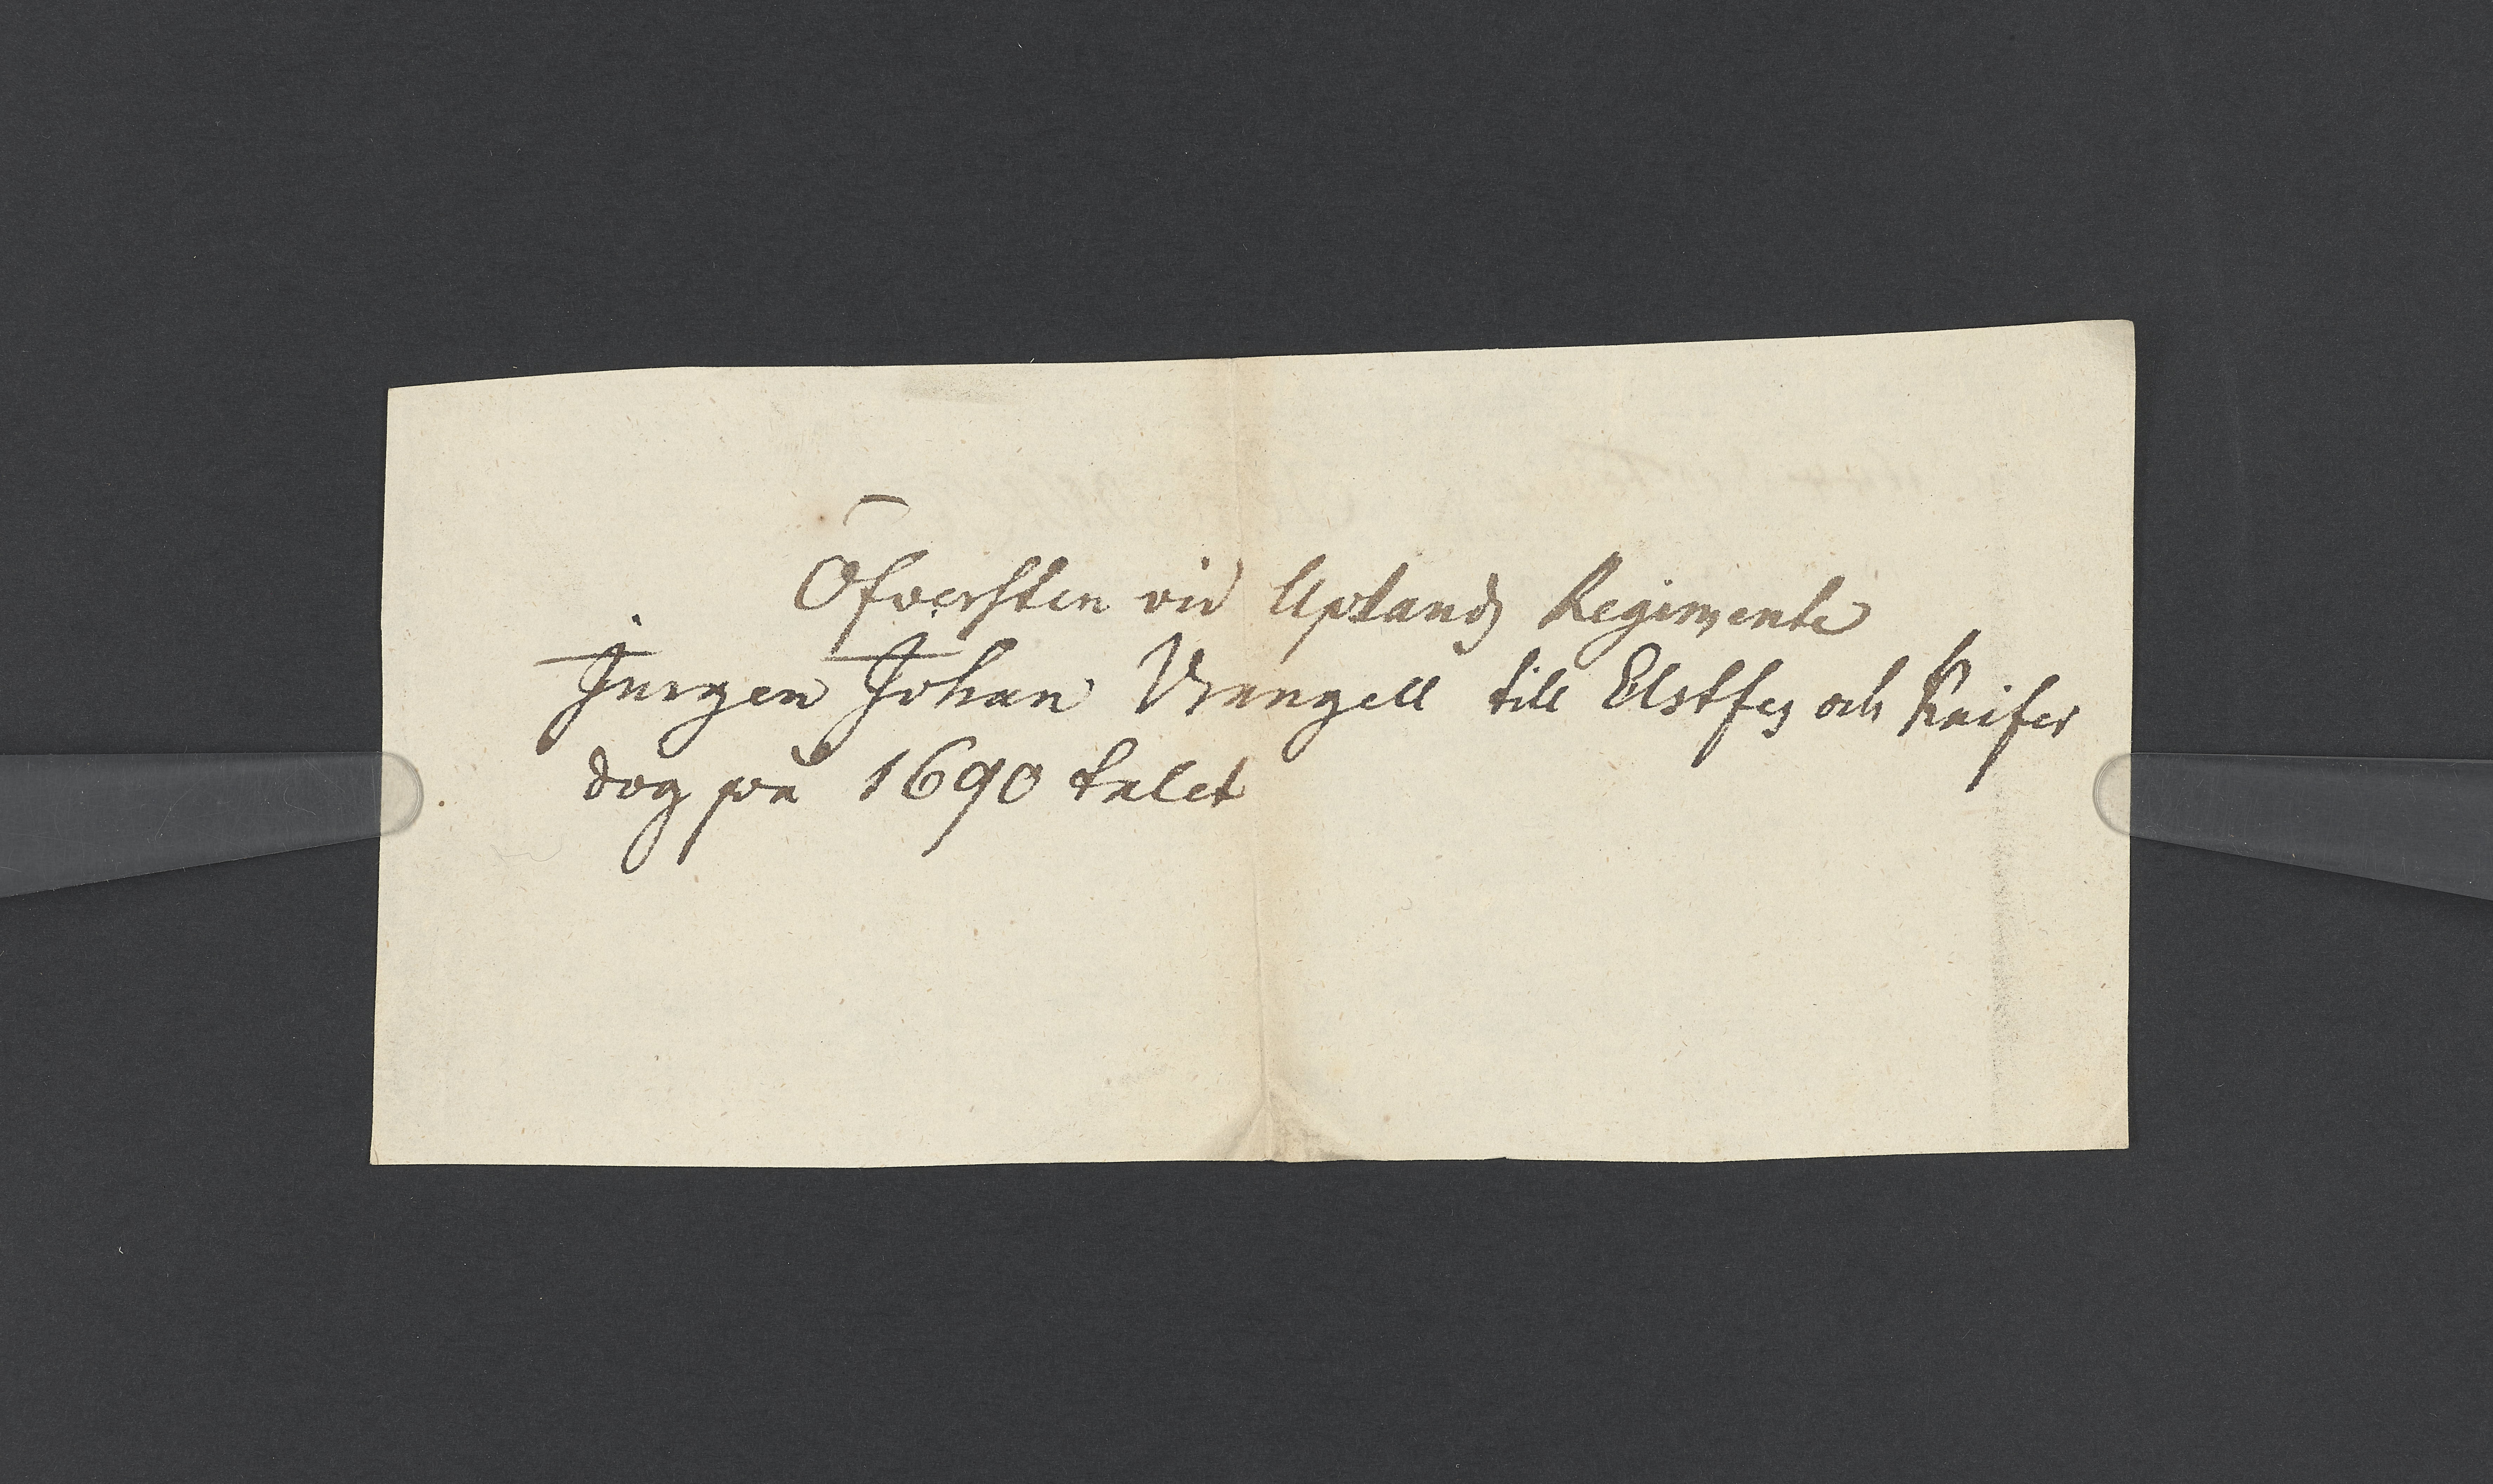 Öfversten vid Uplands Regimente
Jurgen Johan Wrangell till Elstfer och Kaifer
dog på 1690 talet